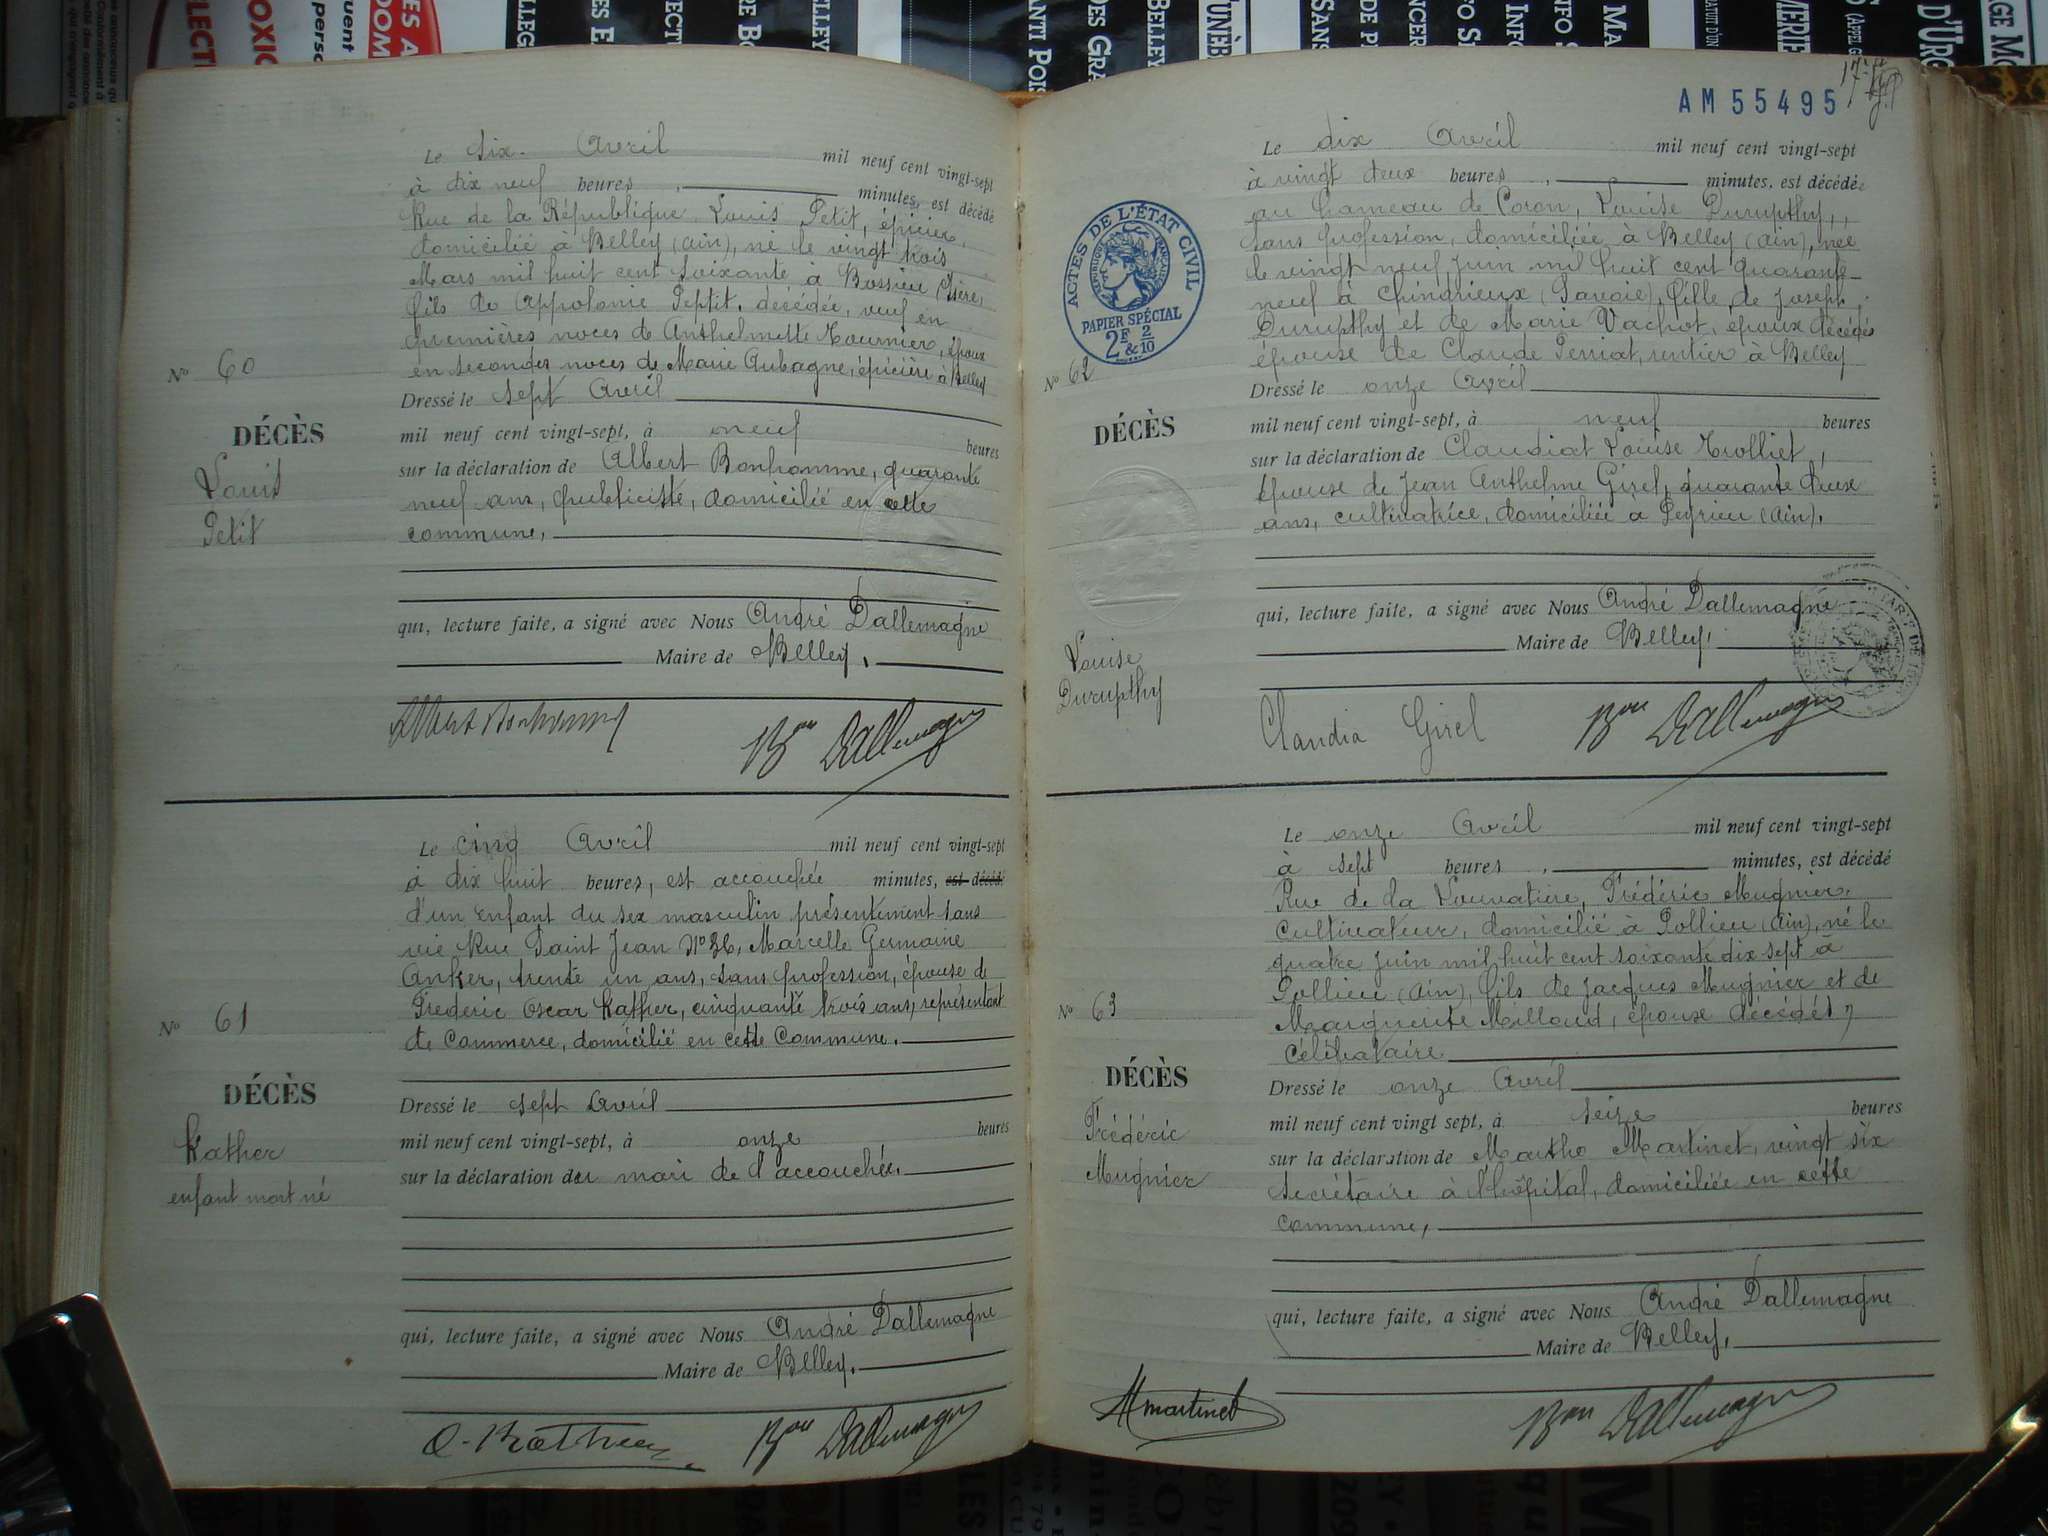 AM 55495
Le Six Avril mil neuf cent vingt-sept
à dix neuf heures, minutes, est décédé
Rue de la République Louis Petit, épicier,
domicilié à Belley (ain), né le vingt trois
Mars mil huit cent soixante à Bossieu (Isère)
fils de Appolonie Peptit, décédée, veuf en
premières noces de Anthelmette Tournier, époux
en secondes noces de Marie Aubagne, épicière à Belley
No 60
DÉCÈS
Louis
Petit
Dressé le sept Avril
mil neuf cent vingt-sept, à neuf heures
sur la déclaration de Albert Bonhomme, quarante
neuf ans, publiciste, domicilié en cette
commune,
qui, lecture faite, a signé avec Nous André Dallemagne
Maire de Belley,
Albert Bonhomme Bon Dallemagne
Le cinq Avril mil neuf cent vingt-sept
à dix huit heures, est accouchée minutes, est décédé
d'un enfant du sex masculin présentement sans
vie Rue Saint Jean No 36, Marcelle Germaine
Anker, trente un ans, sans profession, épouse de
Frederic Oscar Kather, cinquante trois ans, représentant
de Commerce, domicilié en cette Commune.
No 61
DÉCÈS
Kather
enfant mort né
Dressé le sept Avril
mil neuf cent vingt-sept, à onze heures
sur la déclaration du mari de l'accouchée.
qui, lecture faite, a signé avec Nous André Dallemagne
Maire de Belley.
O. Kather Bon Dallemagne
Le dix Avril mil neuf cent vingt-sept
à vingt deux heures, minutes, est décédée
au hameau de Coron, Louise Durupthy,
sans profession, domiciliée à Belley (ain), née
le vingt neuf Juin mil huit cent quarante
neuf à Chindrieux (Savoie), fille de Joseph
Durupthy et de Marie Vachot, époux décédés
épouse de Claude Perriat, rentier à Belley
ACTES DE L'ÉTAT CIVIL
RÉPUBLIQUE FRANÇAISE
PAPIER SPÉCIAL
2F & 2/10
No 62
DÉCÈS
Louise
Durupthy
Dressé le onze Avril
mil neuf cent vingt-sept, à neuf heures
sur la déclaration de Claudia Louise Trolliet,
épouse de Jean Anthelme Girel, quarante deux
ans, cultivatrice, domiciliée à Peyrieu (Ain).
qui, lecture faite, a signé avec Nous André Dallemagne
Maire de Belley.
Claudia Girel Bon Dallemagne
Le onze Avril mil neuf cent vingt-sept
à sept heures, minutes, est décédé
Rue de la Louvatière, Frédéric Mugnier,
Cultivateur, domicilié à Pollieu (Ain), né le
quatre Juin mil huit cent soixante dix sept à
Pollieu (Ain), fils de Jacques Mugnier et de
Marguerite Milloud, époux décédés,
Célibataire
No 63
DÉCÈS
Frédéric
Mugnier
Dressé le onze Avril
mil neuf cent vingt sept, à seize heures
sur la déclaration de Marthe Martinet, vingt six
Secrétaire à l'hôpital, domiciliée en cette
commune,
qui, lecture faite, a signé avec Nous André Dallemagne
Maire de Belley,
M martinet Bon Dallemagne